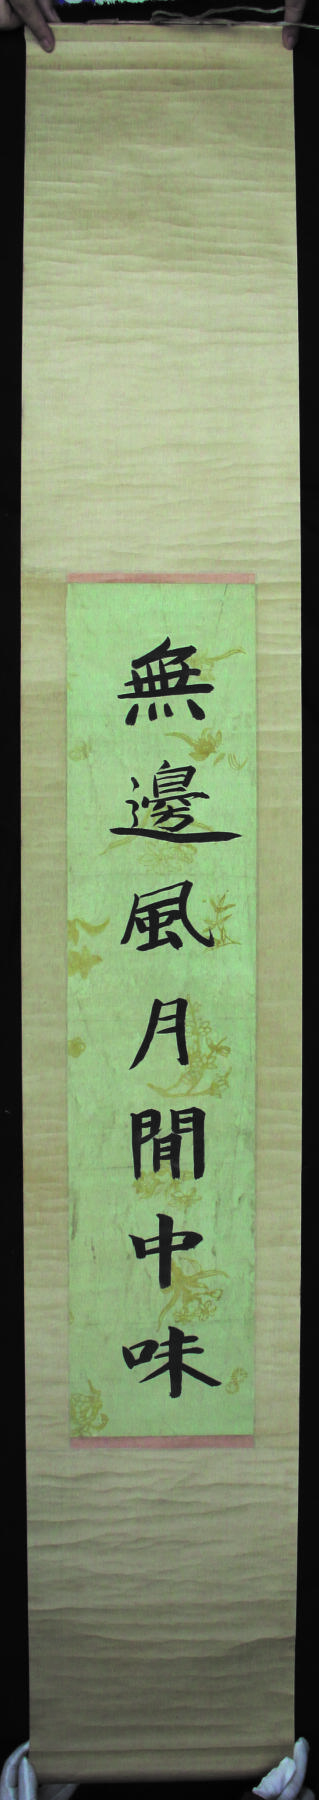 無邊風月閒中味